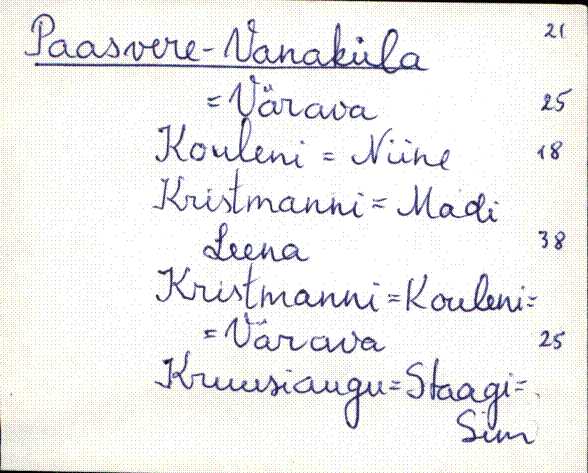 Paasvere-Vanaküla 21
=Värava 25
Kouleni = Niine 18
Kristmanni = Madi
Leena 38
Kristmanni =Kouleni=
=Värava 25
Kruusiaugu=Staagi=
Sim